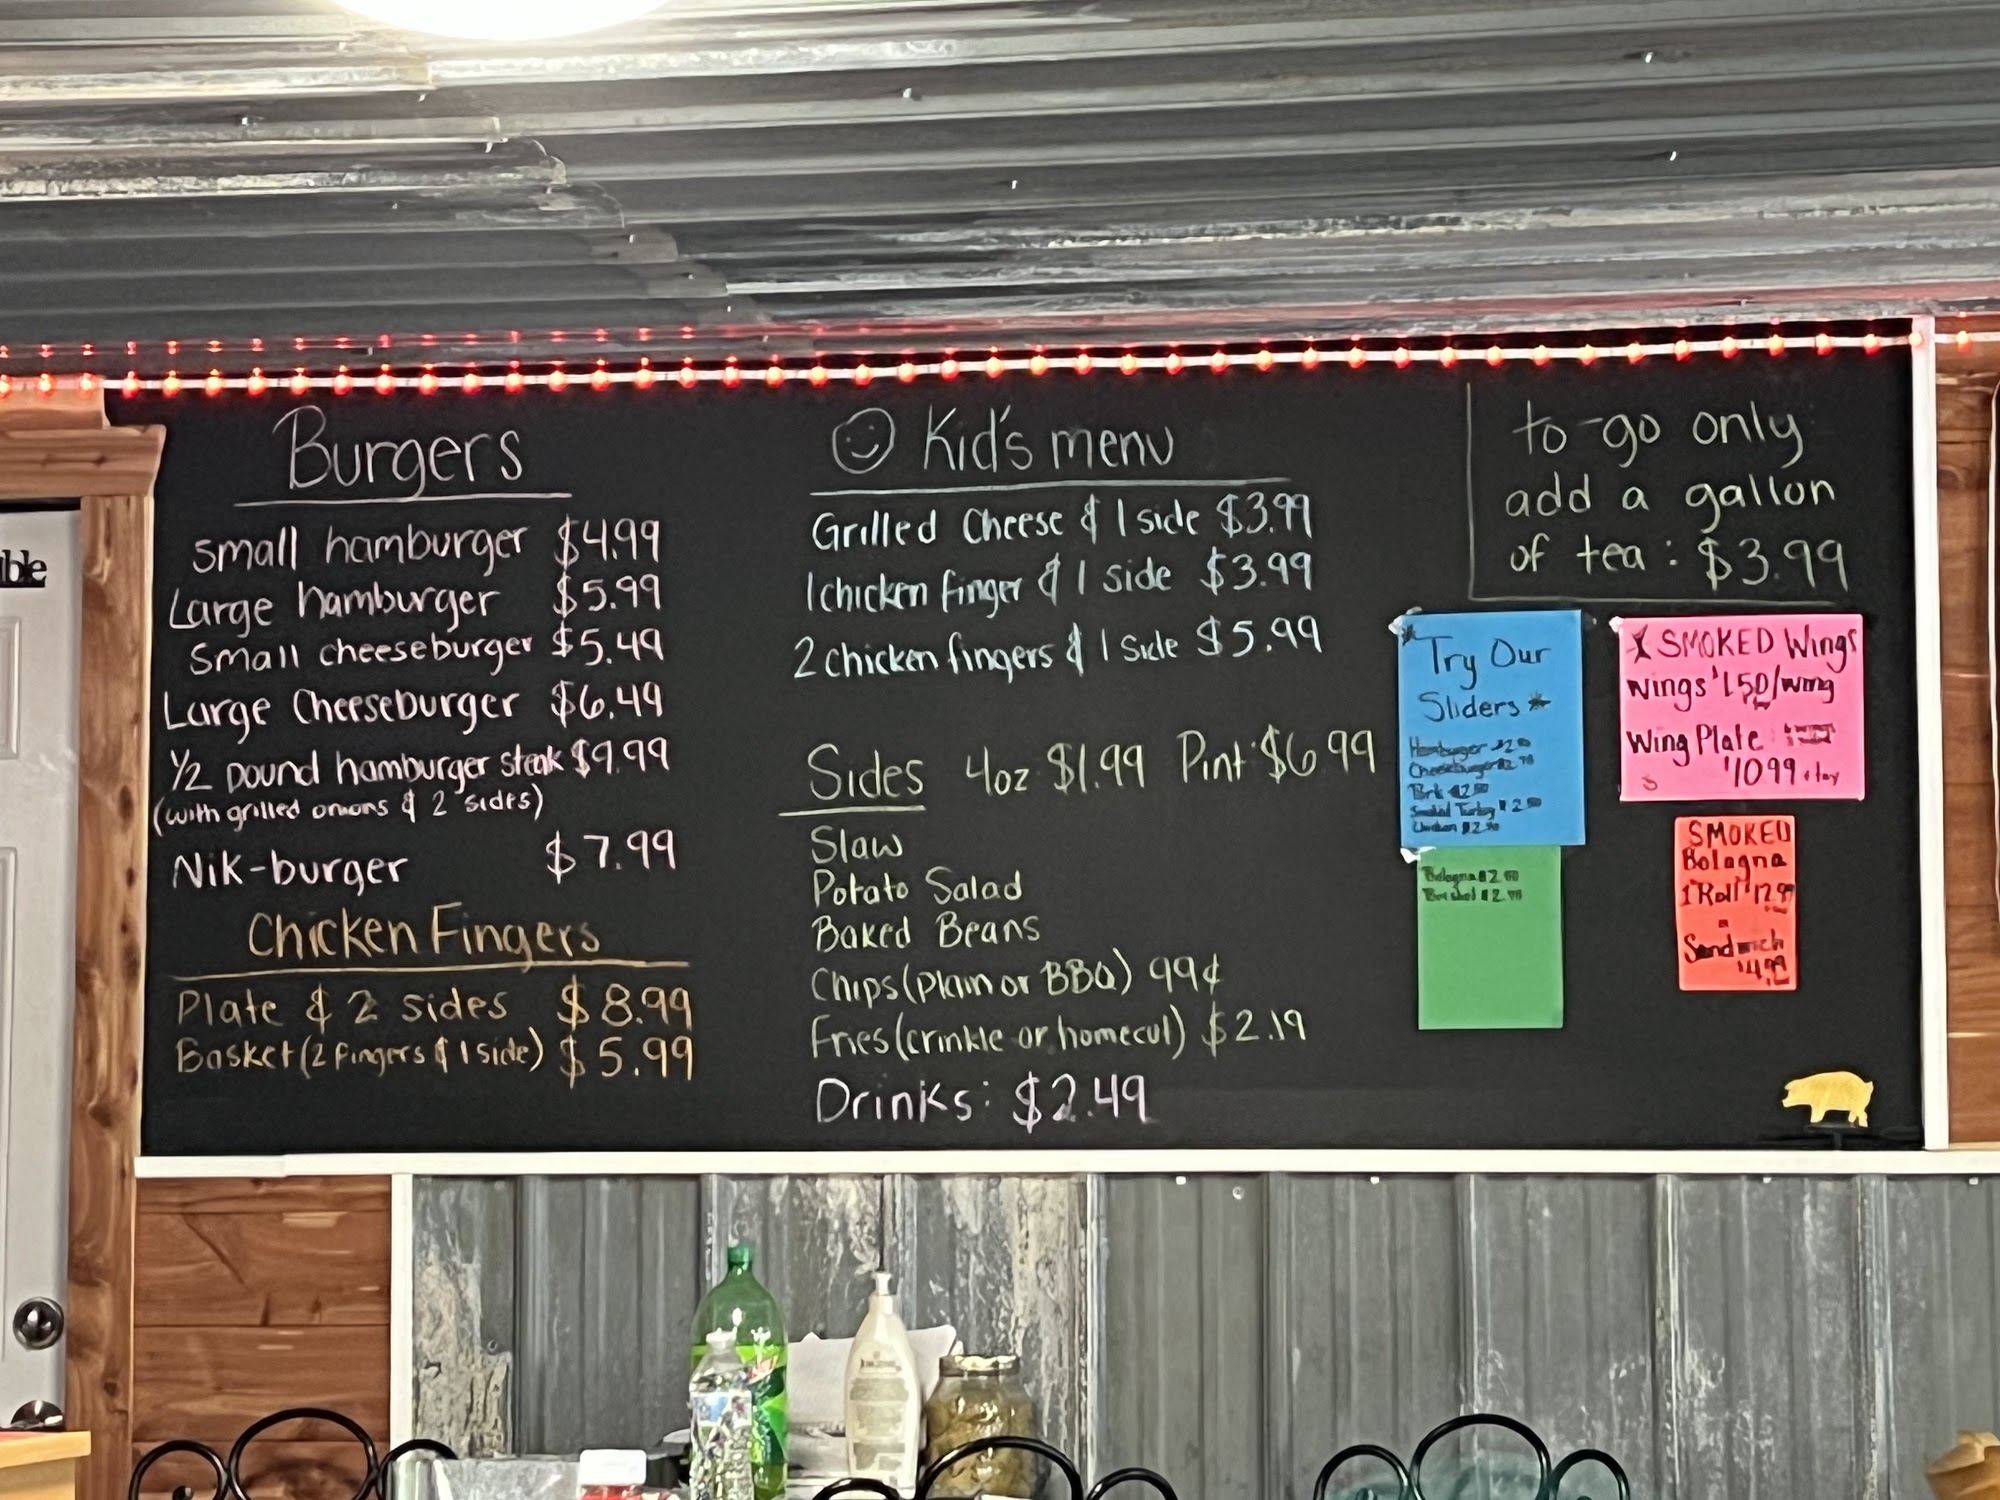 Burgers
small hamburger $4.99
Large hamburger $5.99
Small cheeseburger $5.49
Large Cheeseburger $6.49
1/2 pound hamburger steak $9.99
(with grilled onions & 2 sides)
Nik-burger $7.99
Chicken Fingers
Plate & 2 sides $8.99
Basket (2 fingers & 1 side) $5.99
Kid's menu
Grilled Cheese & 1 side $3.99
1 chicken finger & 1 side $3.99
2 chicken fingers & 1 side $5.99
Sides 4oz $1.99 Pint $6.99
Slaw
Potato Salad
Baked Beans
Chips (plain or BBQ) 99¢
Fries (crinkle or homecut) $2.19
Drinks: $2.49
to-go only
add a gallon
of tea: $3.99
Try Our
Sliders
Hamburger
Cheeseburger
Pork
Smoked Turkey
Chicken
Bologna
SMOKED Wings
Wings $1.50/wing
Wing Plate
$10.99
SMOKED
Bologna
1 Roll $12.99
Sandwich
$4.99
ble